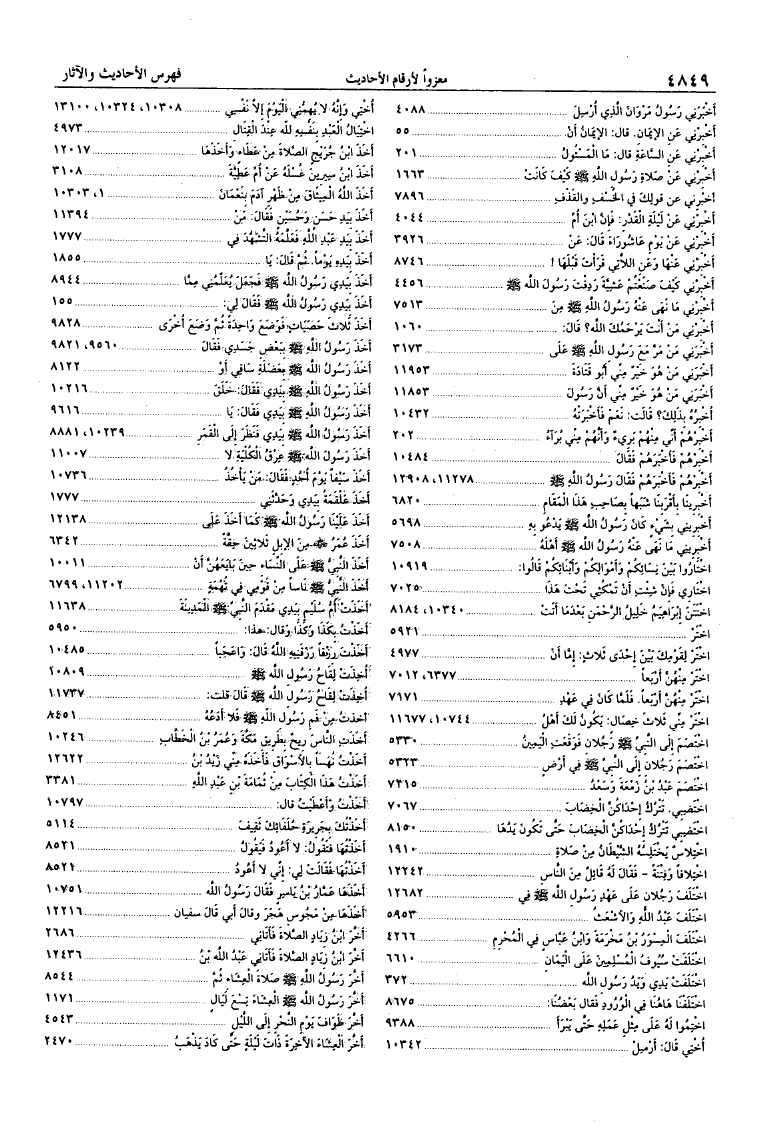 ٤٨٤٩
معزواً لأرقام الأحاديث
فهرس الأحاديث والآثار
أَخْبَرَنِي رَسُولُ مَرْوَانَ الَّذِي أُرْسِلَ ... ٤٠٨٨
أَخْبِرْنِي عَنِ الإِيمَانِ. قال: الإِيمَانُ أَنْ ... ٥٥
أَخْبِرْنِي عَنِ السَّاعَةِ قال: مَا الْمَسْئُولُ ... ٢٠١
أَخْبِرْنِي عَنْ صَلاةِ رَسُولِ اللَّهِ ﷺ كَيْفَ كَانَتْ ... ١٦٦٣
أخبرني عن قولك في الْخَسْفِ والقَذْفِ ... ٧٨٩٦
أَخْبِرْنِي عَنْ لَيْلَةِ الْقَدْرِ: فَإِنَّ ابْنَ أُمِّ ... ٤٠٤٤
أَخْبِرْنِي عَنْ يَوْمِ عَاشُورَاءَ قَالَ: عَنْ ... ٣٩٢٦
أَخْبِرْنِي عَنْهَا وَعَنِ اللَّاتِي قَرَأْتَ قَبْلَهَا! ... ٨٧٤٦
أَخْبِرْنِي كَيْفَ صَنَعْتُمْ عَشِيَّةَ رَدِفْتَ رَسُولَ اللَّهِ ﷺ ... ٤٤٥٦
أَخْبِرْنِي مَا نَهَى عَنْهُ رَسُولُ اللَّهِ ﷺ مِنَ ... ٧٥١٣
أَخْبِرْنِي مَنْ أَنْتَ يَرْحَمُكَ اللَّه؟ قَالَ: ... ١٠٦٠
أَخْبَرَنِي مَنْ مَرَّ مَعَ رَسُولِ اللَّهِ ﷺ عَلَى ... ٣١٧٣
أَخْبَرَنِي مَنْ هُوَ خَيْرٌ مِنِّي أَبُو قَتَادَةَ ... ١١٩٥٣
أَخْبَرَنِي مَنْ هُوَ خَيْرٌ مِنِّي أَنَّ رَسُولَ ... ١١٨٥٣
أُخْبِرُهُ بِذَلِكَ؟ قَالَت: نَعَمْ فَأَخْبَرَتْهُ ... ١٠٤٣٢
أَخْبِرْهُمْ أَنِّي مِنْهُمْ بَرِيءٌ وَأَنَّهُمْ مِنِّي بُرَآءُ ... ٢٠٢
أَخْبِرْهُمْ فَأَخْبَرَهُمْ فَقَالَ ... ١٠٤٨٤
أَخْبِرْهُمْ فَأَخْبَرَهُمْ فَقَالَ رَسُولُ اللَّهِ ﷺ ... ١١٢٧٨، ١٢٩٠٨
أَخْبِرِينَا بِأَقْرَبِنَا شَبَهاً بِصَاحِبِ هَذَا الْمَقَامِ ... ٦٨٢٠
أَخْبِرِينِي بِشَيْءٍ كَانَ رَسُولُ اللَّهِ ﷺ يَدْعُو بِهِ ... ٥٦٩٨
أَخْبِرِينِي مَا نَهَى عَنْهُ رَسُولُ اللَّهِ ﷺ أَهْلَهُ ... ٧٥٠٨
اخْتَارُوا بَيْنَ نِسَائِكُمْ وَأَمْوَالِكُمْ وَأَبْنَائِكُمْ قَالُوا: ... ١٠٩١٩
اخْتَارِي فَإِنْ شِئْتِ أَنْ تَمْكُثِي تَحْتَ هَذَا ... ٧٠٢٥
اخْتَتَنَ إِبْرَاهِيمُ خَلِيلُ الرَّحْمَنِ بَعْدَمَا أَتَتْ ... ١٠٣٤٠، ٨١٨٤
اخْتَرْ ... ٥٩٢١
اخْتَرْ لِقَوْمِكَ بَيْنَ إِحْدَى ثَلاثٍ: إِمَّا أَنْ ... ٤٩٧٧
اخْتَرْ مِنْهُنَّ أَرْبَعاً ... ٦٣٧٧، ٧٠١٢
اخْتَرْ مِنْهُنَّ أَرْبَعاً. فَلَمَّا كَانَ فِي عَهْدِ ... ٧١٧١
اخْتَرْ مِنِّي ثَلاثَ خِصَالٍ: يَكُونُ لَكَ أَهْلُ ... ١٠٧٤٤، ١١٦٧٧
اخْتَصَمَ إِلَى النَّبِيِّ ﷺ رَجُلانِ فَوَقَعَتِ الْيَمِينُ ... ٥٣٣٠
اخْتَصَمَ رَجُلانِ إِلَى النَّبِيِّ ﷺ فِي أَرْضٍ ... ٥٣٢٣
اخْتَصَمَ عَبْدُ بْنُ زَمْعَةَ وَسَعْدُ ... ٧٣١٥
اخْتَضِبِي. تَتْرُكُ إِحْدَاكُنَّ الْخِضَابَ ... ٧٠٦٧
اخْتَضِبِي تَتْرُكُ إِحْدَاكُنَّ الْخِضَابَ حَتَّى تَكُونَ يَدُهَا ... ٨١٥٠
اخْتِلاسٌ يَخْتَلِسُهُ الشَّيْطَانُ مِنْ صَلاةِ ... ١٩١٠
اخْتِلافاً وَفِتْنَةً - فَقَالَ لَهُ قَائِلٌ مِنَ النَّاسِ ... ١٢٢٤٢
اخْتَلَفَ رَجُلانِ عَلَى عَهْدِ رَسُولِ اللَّهِ ﷺ فِي ... ١٢٦٨٢
اخْتَلَفَ عَبْدُ اللَّهِ وَالأَشْعَثُ ... ٥٩٥٣
اخْتَلَفَ الْمِسْوَرُ بْنُ مَخْرَمَةَ وَابْنُ عَبَّاسٍ فِي الْمُحْرِمِ ... ٤٢٦٦
اخْتَلَفَتْ سُيُوفُ الْمُسْلِمِينَ عَلَى الْيَمَانِ ... ٦٦١٠
اخْتَلَفَتْ يَدِي وَيَدُ رَسُولِ اللَّه ... ٣٧٢
اخْتَلَفْنَا هَاهُنَا فِي الْوُرُودِ فَقَالَ بَعْضُنَا: ... ٨٦٧٥
اخْتِمُوا لَهُ عَلَى مِثْلِ عَمَلِهِ حَتَّى يَبْرَأَ ... ٩٣٨٨
أُخْتِي قَالَ: أَرْمِيلُ ... ١٠٣٤٢
أُخْتِي وَإِنَّهُ لا يَهُمُّنِي الْيَوْمَ إِلاَّ نَفْسِي ... ١٠٣٠٨، ١٠٣٢٤، ١٣١٠٠
اخْتِيَالُ الْعَبْدِ بِنَفْسِهِ لله عِنْدَ الْقِتَالِ ... ٤٩٧٣
أَخَذَ ابْنُ جُرَيْجٍ الصَّلاةَ مِنْ عَطَاءٍ وَأَخَذَهَا ... ١٢٠١٧
أَخَذَ ابْنُ سِيرِينَ غُسْلَهُ عَنْ أُمِّ عَطِيَّةَ ... ٣١٠٨
أَخَذَ اللَّهُ الْمِيثَاقَ مِنْ ظَهْرِ آدَمَ بِنَعْمَانَ ... ١، ١٠٣٠٣
أَخَذَ بِيَدِ حَسَنٍ وَحُسَيْنٍ فَقَالَ: مَنْ ... ١١٣٩٤
أَخَذَ بِيَدِ عَبْدِ اللَّهِ فَعَلَّمَهُ التَّشَهُّدَ فِي ... ١٧٧٧
أَخَذَ بِيَدِهِ يَوْماً. ثُمَّ قَالَ: يَا ... ١٨٥٥
أَخَذَ بِيَدِي رَسُولُ اللَّهِ ﷺ فَجَعَلَ يُعَلِّمُنِي مِمَّا ... ٨٩٤٤
أَخَذَ بِيَدِي رَسُولُ اللَّهِ ﷺ فَقَالَ لِي: ... ١٥٥
أَخَذَ ثَلاثَ حَصَيَاتٍ فَوَضَعَ وَاحِدَةً ثُمَّ وَضَعَ أُخْرَى ... ٩٨٢٨
أَخَذَ رَسُولُ اللَّهِ ﷺ بِبَعْضِ جَسَدِي فَقَالَ ... ٩٥٦٠، ٩٨٢١
أَخَذَ رَسُولُ اللَّهِ ﷺ بِعَضَلَةِ سَاقِي أَوْ ... ٨١٢٢
أَخَذَ رَسُولُ اللَّهِ ﷺ بِيَدِي فَقَالَ: خَلَقَ ... ١٠٢١٦
أَخَذَ رَسُولُ اللَّهِ ﷺ بِيَدِي فَقَالَ: يَا ... ٩٦١٦
أَخَذَ رَسُولُ اللَّهِ ﷺ بِيَدِي فَنَظَرَ إِلَى الْقَمَرِ ... ١٠٢٣٩، ٨٨٨١
أَخَذَ رَسُولَ اللَّهِ ﷺ عِرْقُ الْكُلْيَةِ لا ... ١١٠٠٧
أَخَذَ سَيْفاً يَوْمَ أُحُدٍ فَقَالَ: مَنْ يَأْخُذُ ... ١٠٧٣٦
أَخَذَ عَلْقَمَةُ بِيَدِي وَحَدَّثَنِي ... ١٧٧٧
أَخَذَ عَلَيْنَا رَسُولُ اللَّهِ ﷺ كَمَا أَخَذَ عَلَى ... ١٢١٣٨
أَخَذَ عُمَرُ مِنَ الإِبِلِ ثَلاثِينَ حِقَّةً ... ٦٣٤٢
أَخَذَ النَّبِيُّ ﷺ عَلَى النِّسَاءِ حِينَ بَايَعَهُنَّ أَنْ ... ١٠٠١١
أَخَذَ النَّبِيُّ ﷺ نَاساً مِنْ قَوْمِي فِي تُهْمَةٍ ... ١١٢٠٢، ٦٧٩٩
أَخَذَتْ أُمُّ سُلَيْمٍ بِيَدِي مَقْدَمَ النَّبِيِّ ﷺ الْمَدِينَةَ ... ١١٦٣٨
أَخَذْتُ بِكَذَا وَكَذَا وَقَالَ: هَذَا: ... ٥٩٥٠
أَخَذْتُ رِزْقاً رَزَقَنِيهِ اللَّهُ قَالَ: وَاعَجَباً ... ١٠٤٨٥
أُخِذَتْ لِقَاحُ رَسُولِ اللَّهِ ﷺ ... ١٠٨٠٩
أُخِذَتْ لِقَاحُ رَسُولِ اللَّهِ ﷺ قَالَ قلت: ... ١١٧٣٧
أخذتُ مِنْ فَمِ رَسُولِ اللَّهِ ﷺ فَلا أَدَعُهُ ... ٨٤٥١
أَخَذَتِ النَّاسَ رِيحٌ بِطَرِيقِ مَكَّةَ وَعُمَرُ بْنُ الْخَطَّابِ ... ١٠٢٤٦
أَخَذْتُ نُهَساً بِالأَسْوَافِ فَأَخَذَهُ مِنِّي زَيْدُ بْنُ ... ١٢٦٢٢
أَخَذْتُ هَذَا الْكِتَابَ مِنْ ثُمَامَةَ بْنِ عَبْدِ اللَّهِ ... ٣٣٨١
أَخَذْتُ وَأَعْطَيْتُ قال: ... ١٠٧٩٧
أَخَذْتُكَ بِجَرِيرَةِ حُلَفَائِكَ ثَقِيفَ ... ٥١١٤
أَخَذْتُهَا فَتَقُولُ: لا أَعُودُ فَيَقُولُ ... ٨٥٢١
أَخَذْتُهَا فَقَالَتْ لِي: إِنِّي لا أَعُودُ ... ٨٥٢٢
أَخَذَهَا عَمَّارُ بْنُ يَاسِرٍ فَقَالَ رَسُولُ اللَّه ... ١٠٧٥١
أَخَذَهَا مِنْ مَجُوسِ هَجَرَ وقال أبي قال سفيان ... ١٢٢١٦
أَخَّرَ ابْنُ زِيَادٍ الصَّلاةَ فَأَتَانِي ... ٢٦٨٦
أَخَّرَ ابْنُ زِيَادٍ الصَّلاةَ فَأَتَانِي عَبْدُ اللَّهِ بْنُ ... ١٢٤٣٦
أَخَّرَ رَسُولُ اللَّهِ ﷺ صَلاةَ الْعِشَاءِ ثُمَّ ... ٨٥٤٤
أَخَّرَ رَسُولُ اللَّهِ ﷺ الْعِشَاءَ تِسْعَ لَيَالٍ ... ١١٧١
أَخَّرَ طَوَافَ يَوْمِ النَّحْرِ إِلَى اللَّيْلِ ... ٤٥٤٣
أَخَّرَ الْعِشَاءَ الآخِرَةَ ذَاتَ لَيْلَةٍ حَتَّى كَادَ يَذْهَبُ ... ٢٤٧٠